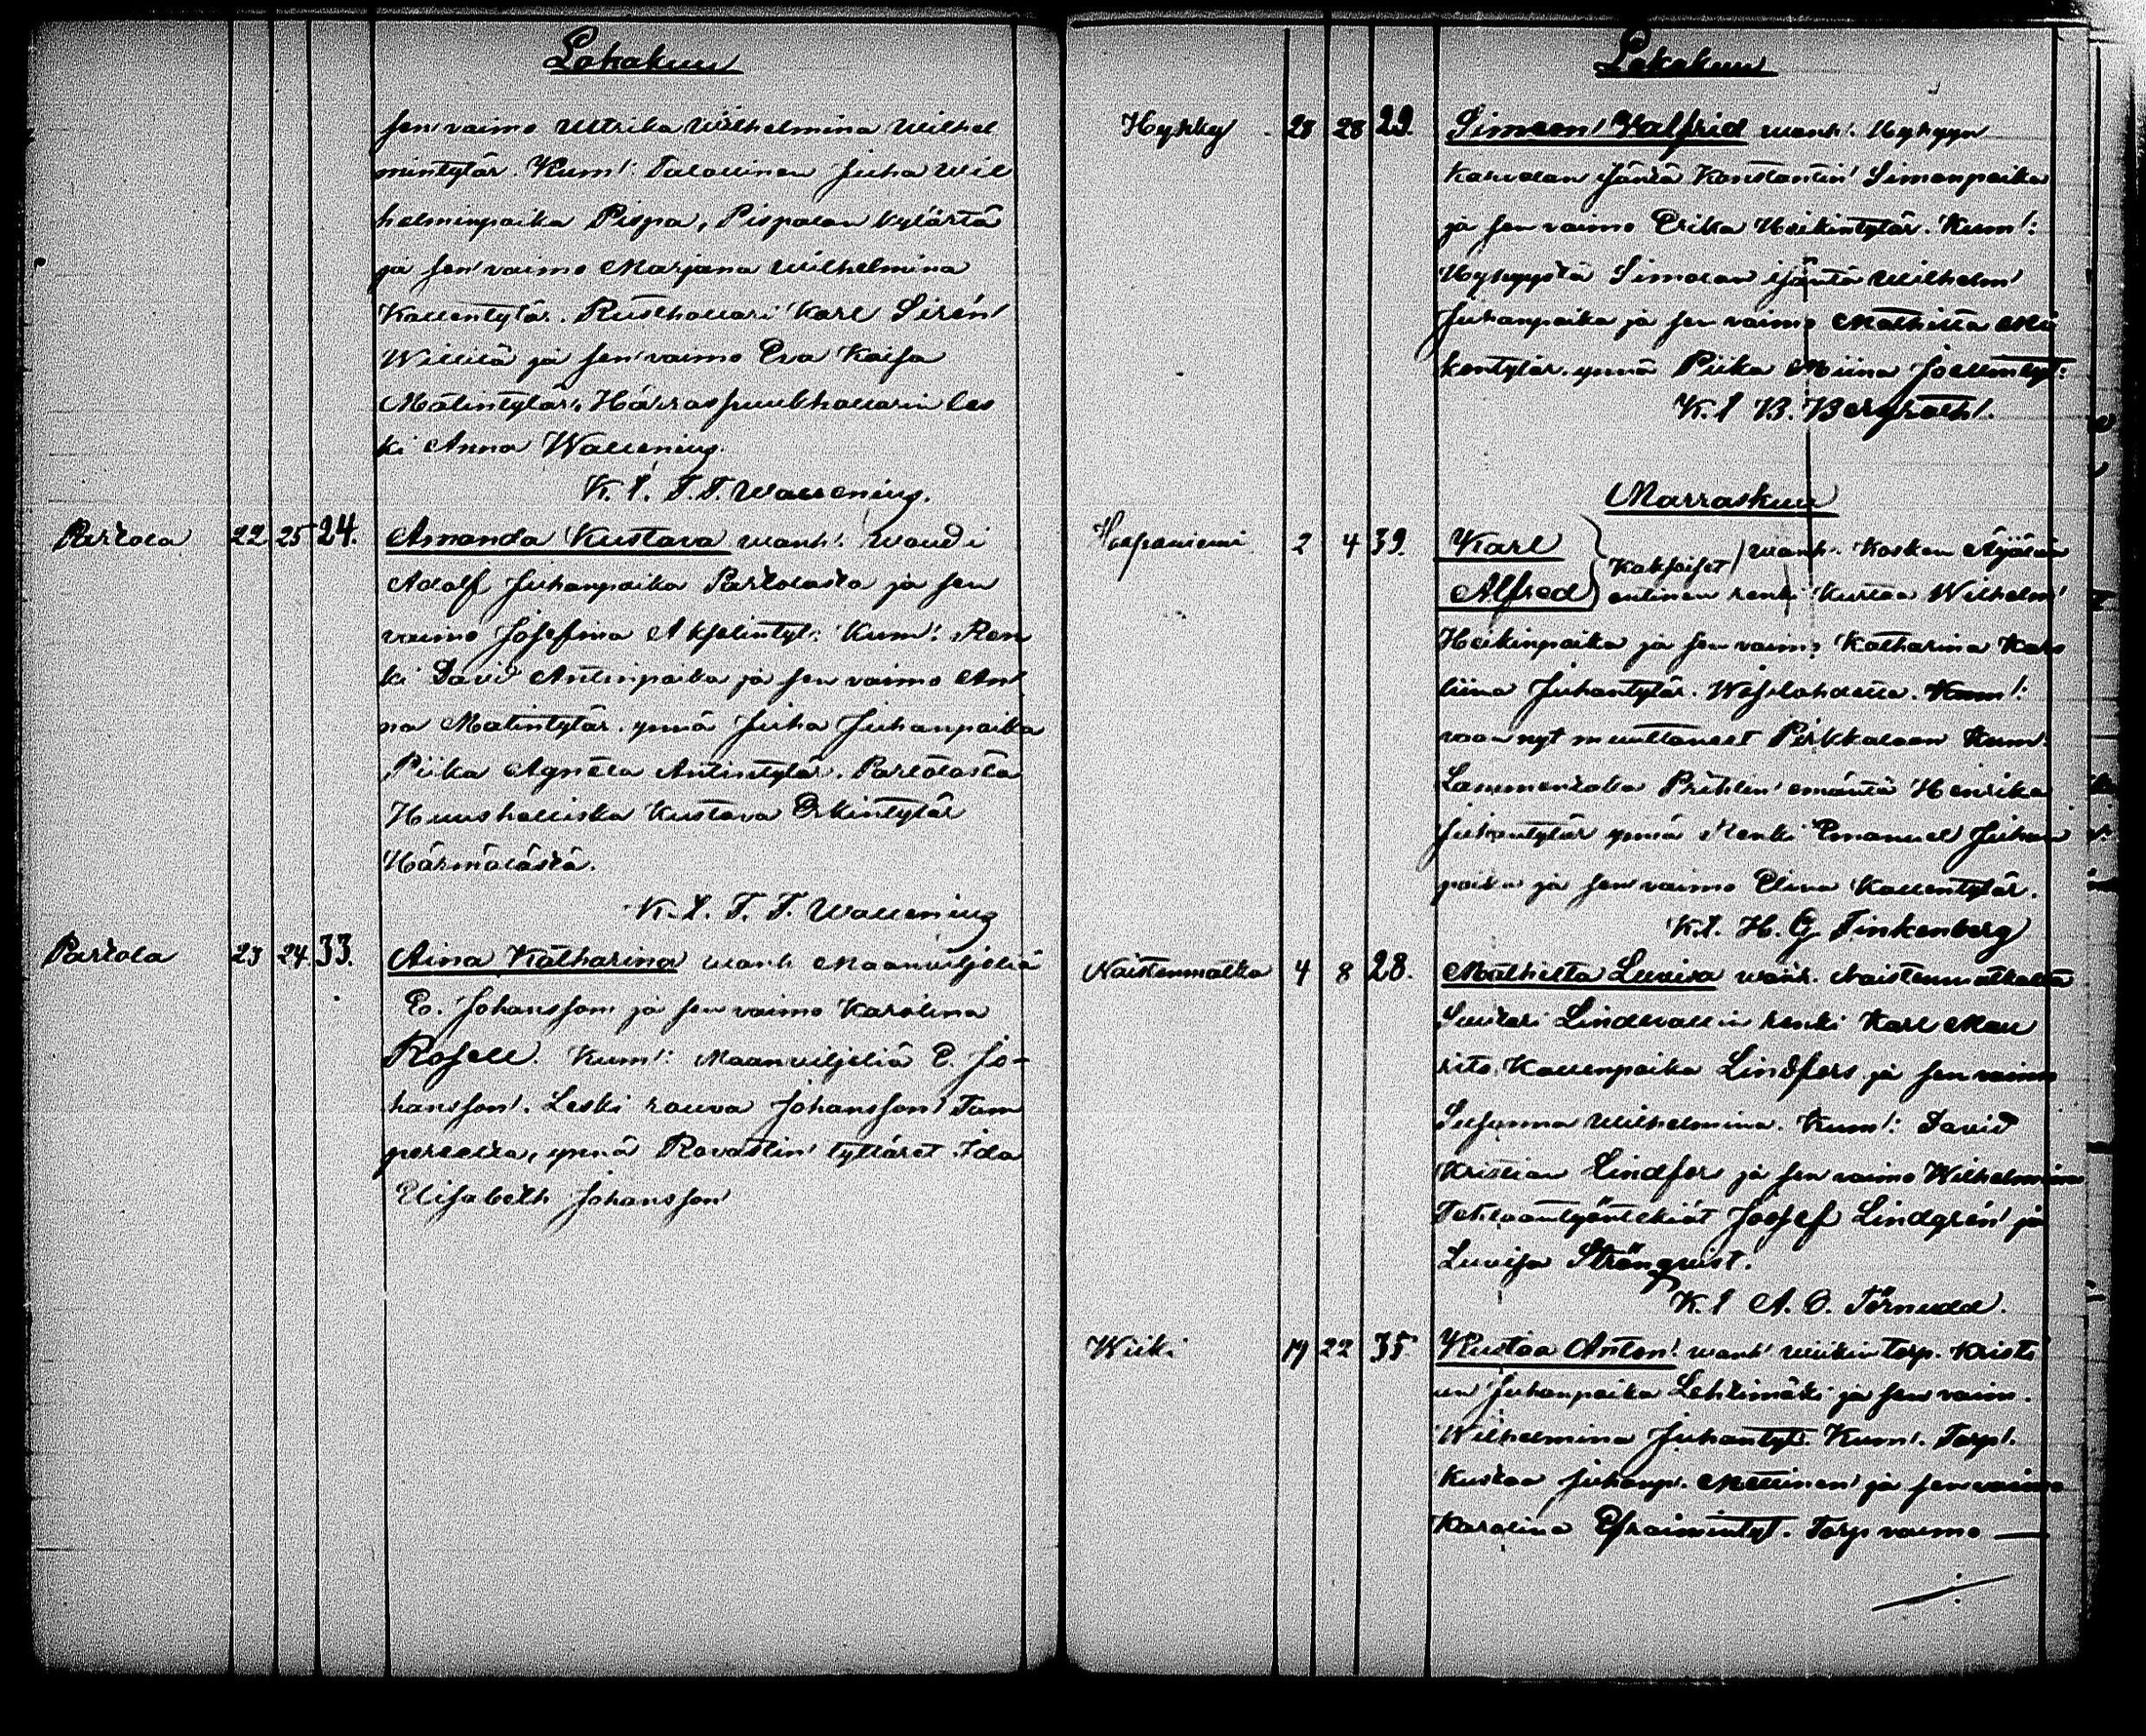 Lokakuu
sen vaimo Ulrika Wilhelmina Wilhel
mintytär. Kum!: Talollinen Juha Wil
helminpoika Pispa, Pispalan kylästä
ja sen vaimo Marjana Wilhelmina
Kallentytär. Rusthollari Karl Sirén
Willilä ja sen vaimo Eva Kaisa
Matintytär, Härras puukhollarin les
ki Anna Wallenius.
K. l. F. F. Wallenius.
Partola 22 25 24. Amanda Kustava wanh!. Woudi
Adolf Juhanpoika Partolasta ja sen
vaimo Josefina Akselintyt. Kum!: Ren
ki David Antinpoika ja sen vaimo An
na Matintytär. ynnä Juha Juhanpoika
Piika Agneta Antintytär. Partolasta
Huushelliska Kustava Erkintytär
Härmälästä.
K. l. F. F. Wallenius
Partola 23 24. 33. Aina Katharina wanh Maanviljeliä
E. Johansson ja sen vaimo Karolina
Rosell. Kum!: Maanviljeliä E. Jo-
hansson!. Leski rouva Johansson! Tam
pereelta, ynnä Rovastin tyttäret Ida
Elisabeth Johansson
Lokakuu
Hyhky 28 28 29. Simeon Valfrid wanh!. Hyhyyn
Karvolan isäntä Konstantin! Simonpoika
ja sen vaimo Erika Heikintytär. Kum!:
Hyhyystä Simolan isäntä Wilhelm
Juhanpoika ja sen vaimo Mathilta Mi
kentytär. ynnä Piika Miina Joelintyt:
K. l B. Bergroth!.
Marraskuu
Haapaniemi 2 4 39. Karl
Alfred Kaksoiset wanh. Kosken
entinen renki Kustaa Wilhelm
Heikinpoika ja sen vaimo Katharina Karo
liina Juhantytär. Wesilahdella. Kum!:
vaan nyt muuttaneet Pirkkalaan Kum!
Lammentaka Prihlin emäntä Henrika
Juhantytär ynnä Renki Emanuel Juhan
poika ja sen vaimo Elina Kallentytär.
K. l. H. G Tinkenberg
Naistenmatka 4 8 28. Mathilta Luvisa wanh. Naistenmatkalta
Suutari Lindevallin renki Karl Mau
rits Kallenpoika Lindfors ja sen vaimo
Susanna Wilhelmina. Kum!: David
Kristian Lindfors ja sen vaimo Wilhelmina
Tehtaantyöntekiät Joosef Lindgrén ja
Luvisa Strönqvist.
K. l A. O. Törnudd.
Wiiki 19 22 35 Kustaa Anton!. wanh! wiikin torp. Kristi
an Juhanpoika Lehtimäki ja sen vaim.
Wilhelmina Juhantyt. Kum!. Torp!.
Kustaa Juhanp. Mettinen! ja sen vaimo
Karolina Efraimintyt. Torp vaimo —